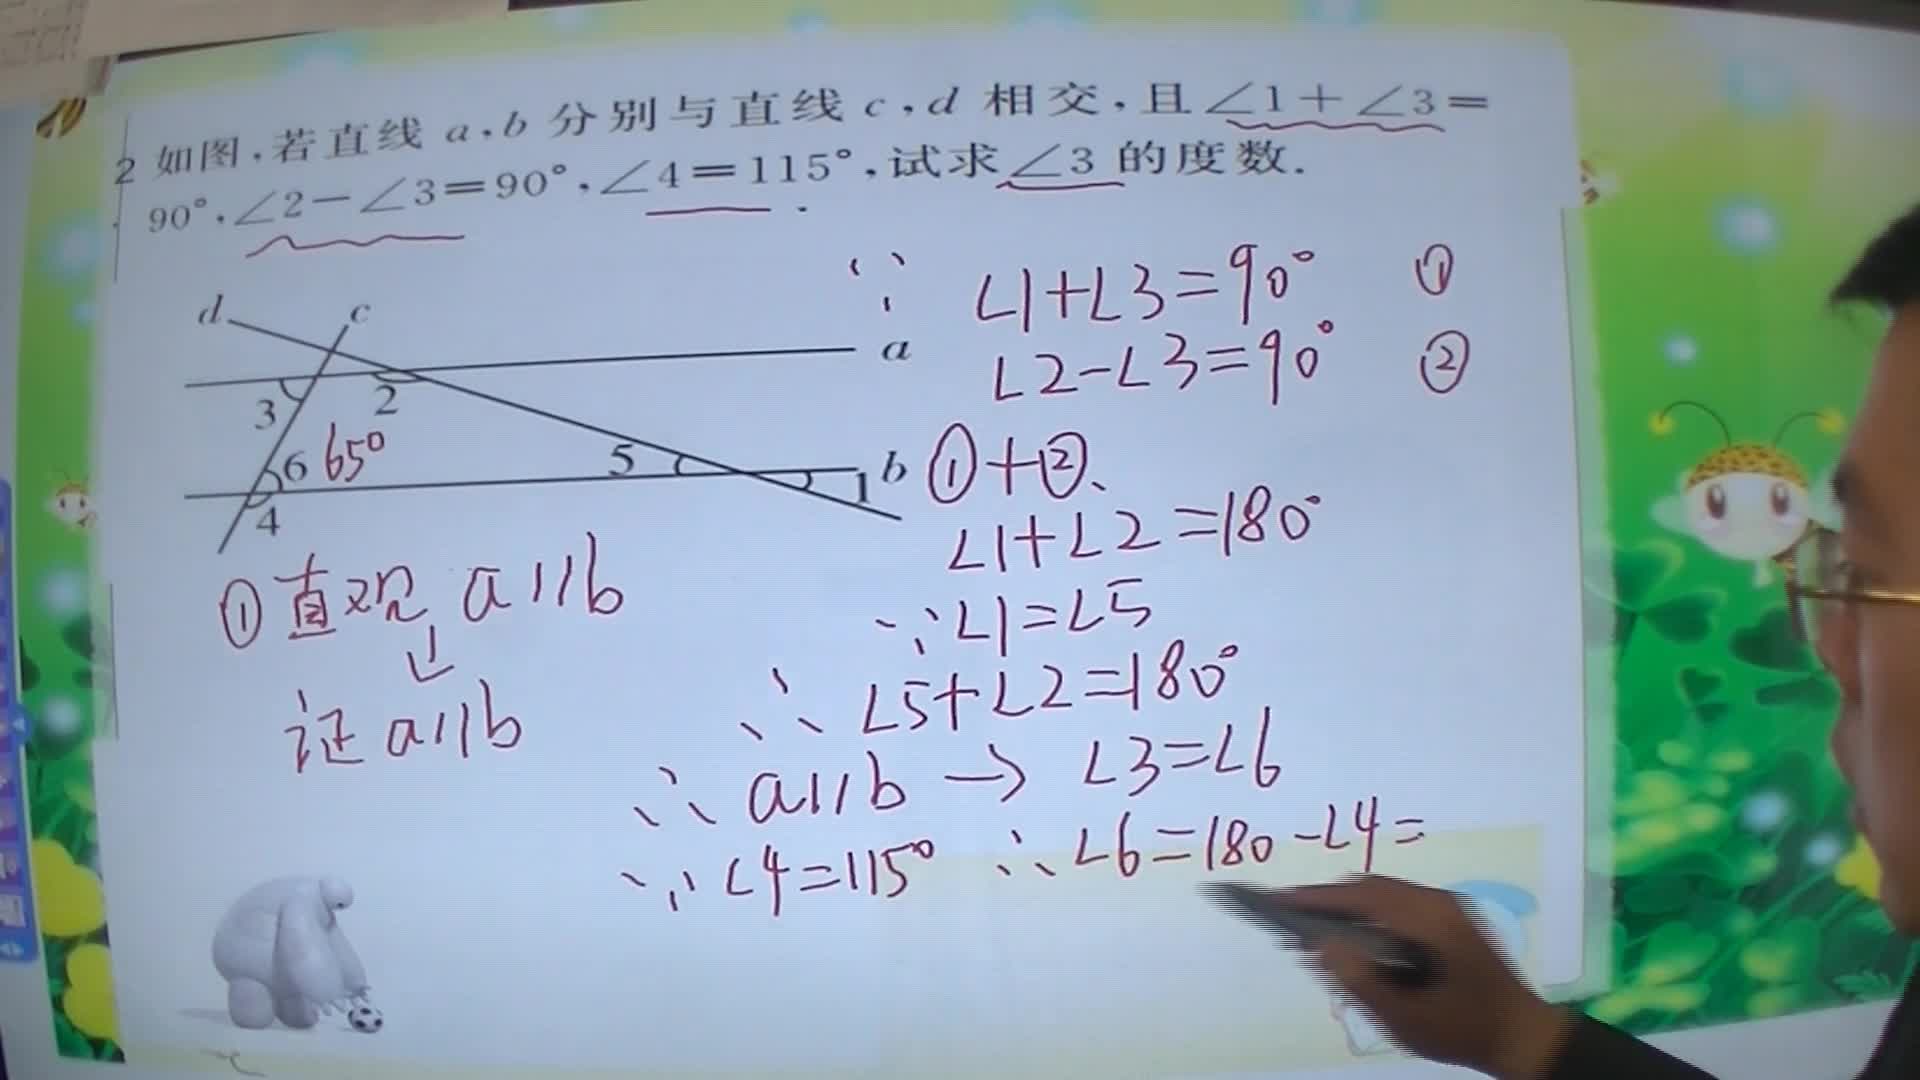 2 如图,若直线 a,b 分别与直线 c,d 相交,且∠1+∠3=
90°,∠2-∠3=90°,∠4=115°,试求∠3 的度数.
d
c
a
3
2
6 65°
5
b
1
4
∵ ∠1+∠3=90° ①
∠2-∠3=90° ②
①+②、
∠1+∠2=180°
∵∠1=∠5
∴ ∠5+∠2=180°
∴ a//b → ∠3=∠6
∵ ∠4=115° ∴ ∠6=180-∠4=
①直观 a//b
↓
证 a//b